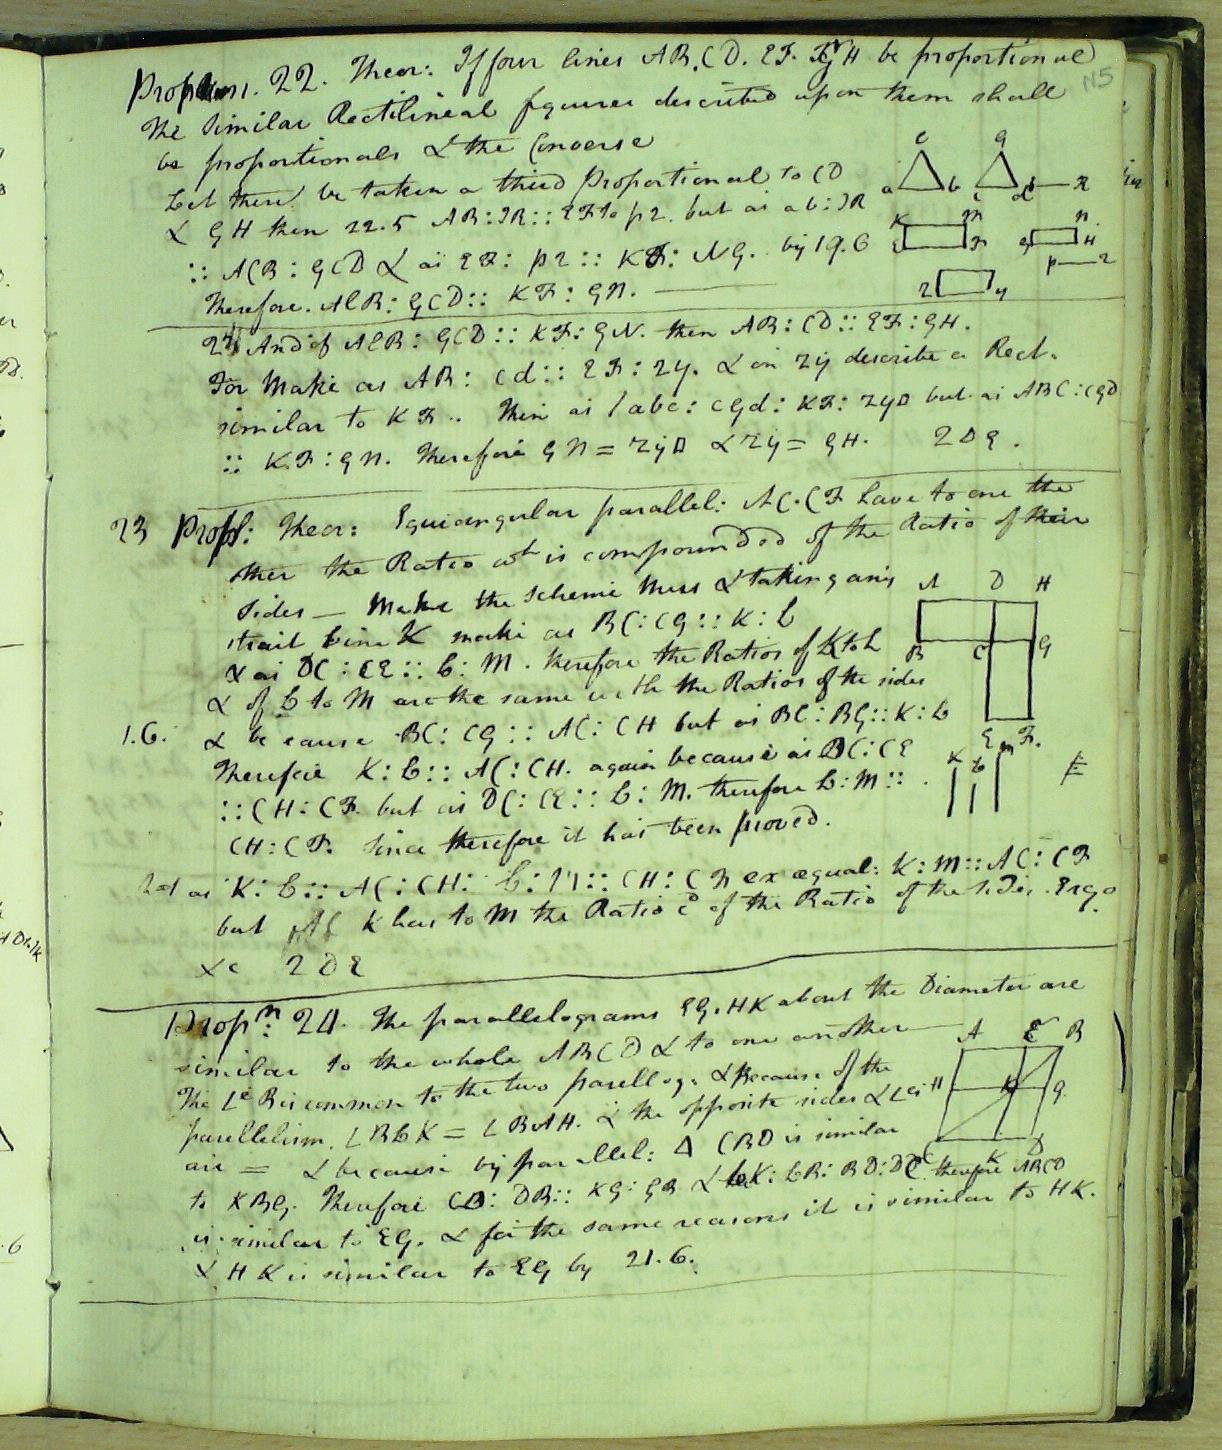 Propn. 22. Theor: If four lines AB, CD. EF. GH be proportional
115
the Similar Rectilineal figures described upon them shall
be proportionals & the Converse
Let there be taken a third Proportional to CD
& GH then 22.5 AB: IR:: EF to p2. but as ab: IR
:: ACB: GCD & as EF: p2:: KF: NG. by 19.6
Therefore. ACB: GCD:: KF: GN.
And if ACB: GCD:: KF: GN. then AB: CD:: EF: GH.
For Make as AB: cd:: EF: zy. & on zy describe a Rect.
similar to KF.. Then as abc: cgd: KF: zy□ but as ABC: cgd
:: KF: GN. Therefore GN = zy□ & zy = GH. 2DE.
23 Prop: Theor: Equiangular parallel: AC. CF have to one the
other the Ratio wt is compounded of the Ratio of their
sides — Make the scheme thus & taking any
strait line K make as BC: CG:: K: L
& as DC: CE:: L: M. therefore the Ratios of K to L
& of L to M are the same with the Ratios of the sides
1.6. & because BC: CG:: AC: CH but as BC: BG:: K: L
Therefore K: L:: AC: CH. again because as DC: CE
:: CH: CF. but as DC: CE:: L: M. therefore L: M::
CH: CF. Since therefore it has been proved.
as K: L:: AC: CH: L: M:: CH: CF ex equal: K: M:: AC: CF
but K has to M the Ratio of the Ratio of the sides. Ergo
&c 2DE
Propn: 24. The parallelograms EG. HK about the Diameter are
similar to the whole ABCD & to one another
The Le B is common to the two parellog. & Because of the
parellelism. ∠BEK = ∠BAH. & the opposite sides &
are = & because by parallel: Δ CBD is similar
to KBG. Therefore CD: DB:: KG: GB & EK: EB: BD: DC therefore ABCD
is similar to EG. & for the same reasons it is similar to HK.
& HK is similar to EG by 21.6.